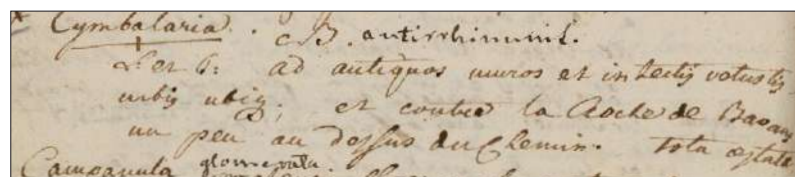 Cymbalaria. cB. antirrhinum
L et b: ad antiquos muros et in tectis vetustis
urbis ubiq; et contre la Roche de
un peu au dessus du Chemin. tota æstate
Campanula glomerata.